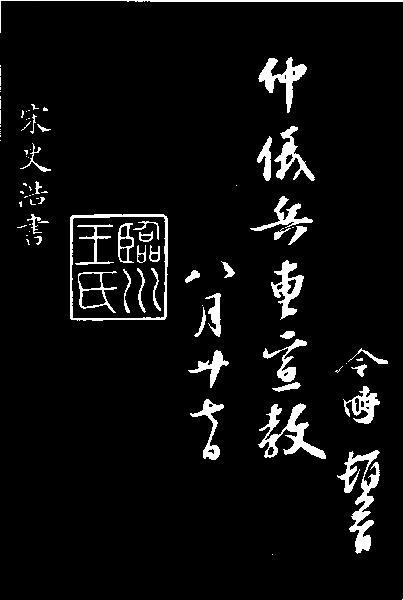 令畤頓首
仲儀兵曹宣教
八月廿七日
臨川王氏
宋史浩書